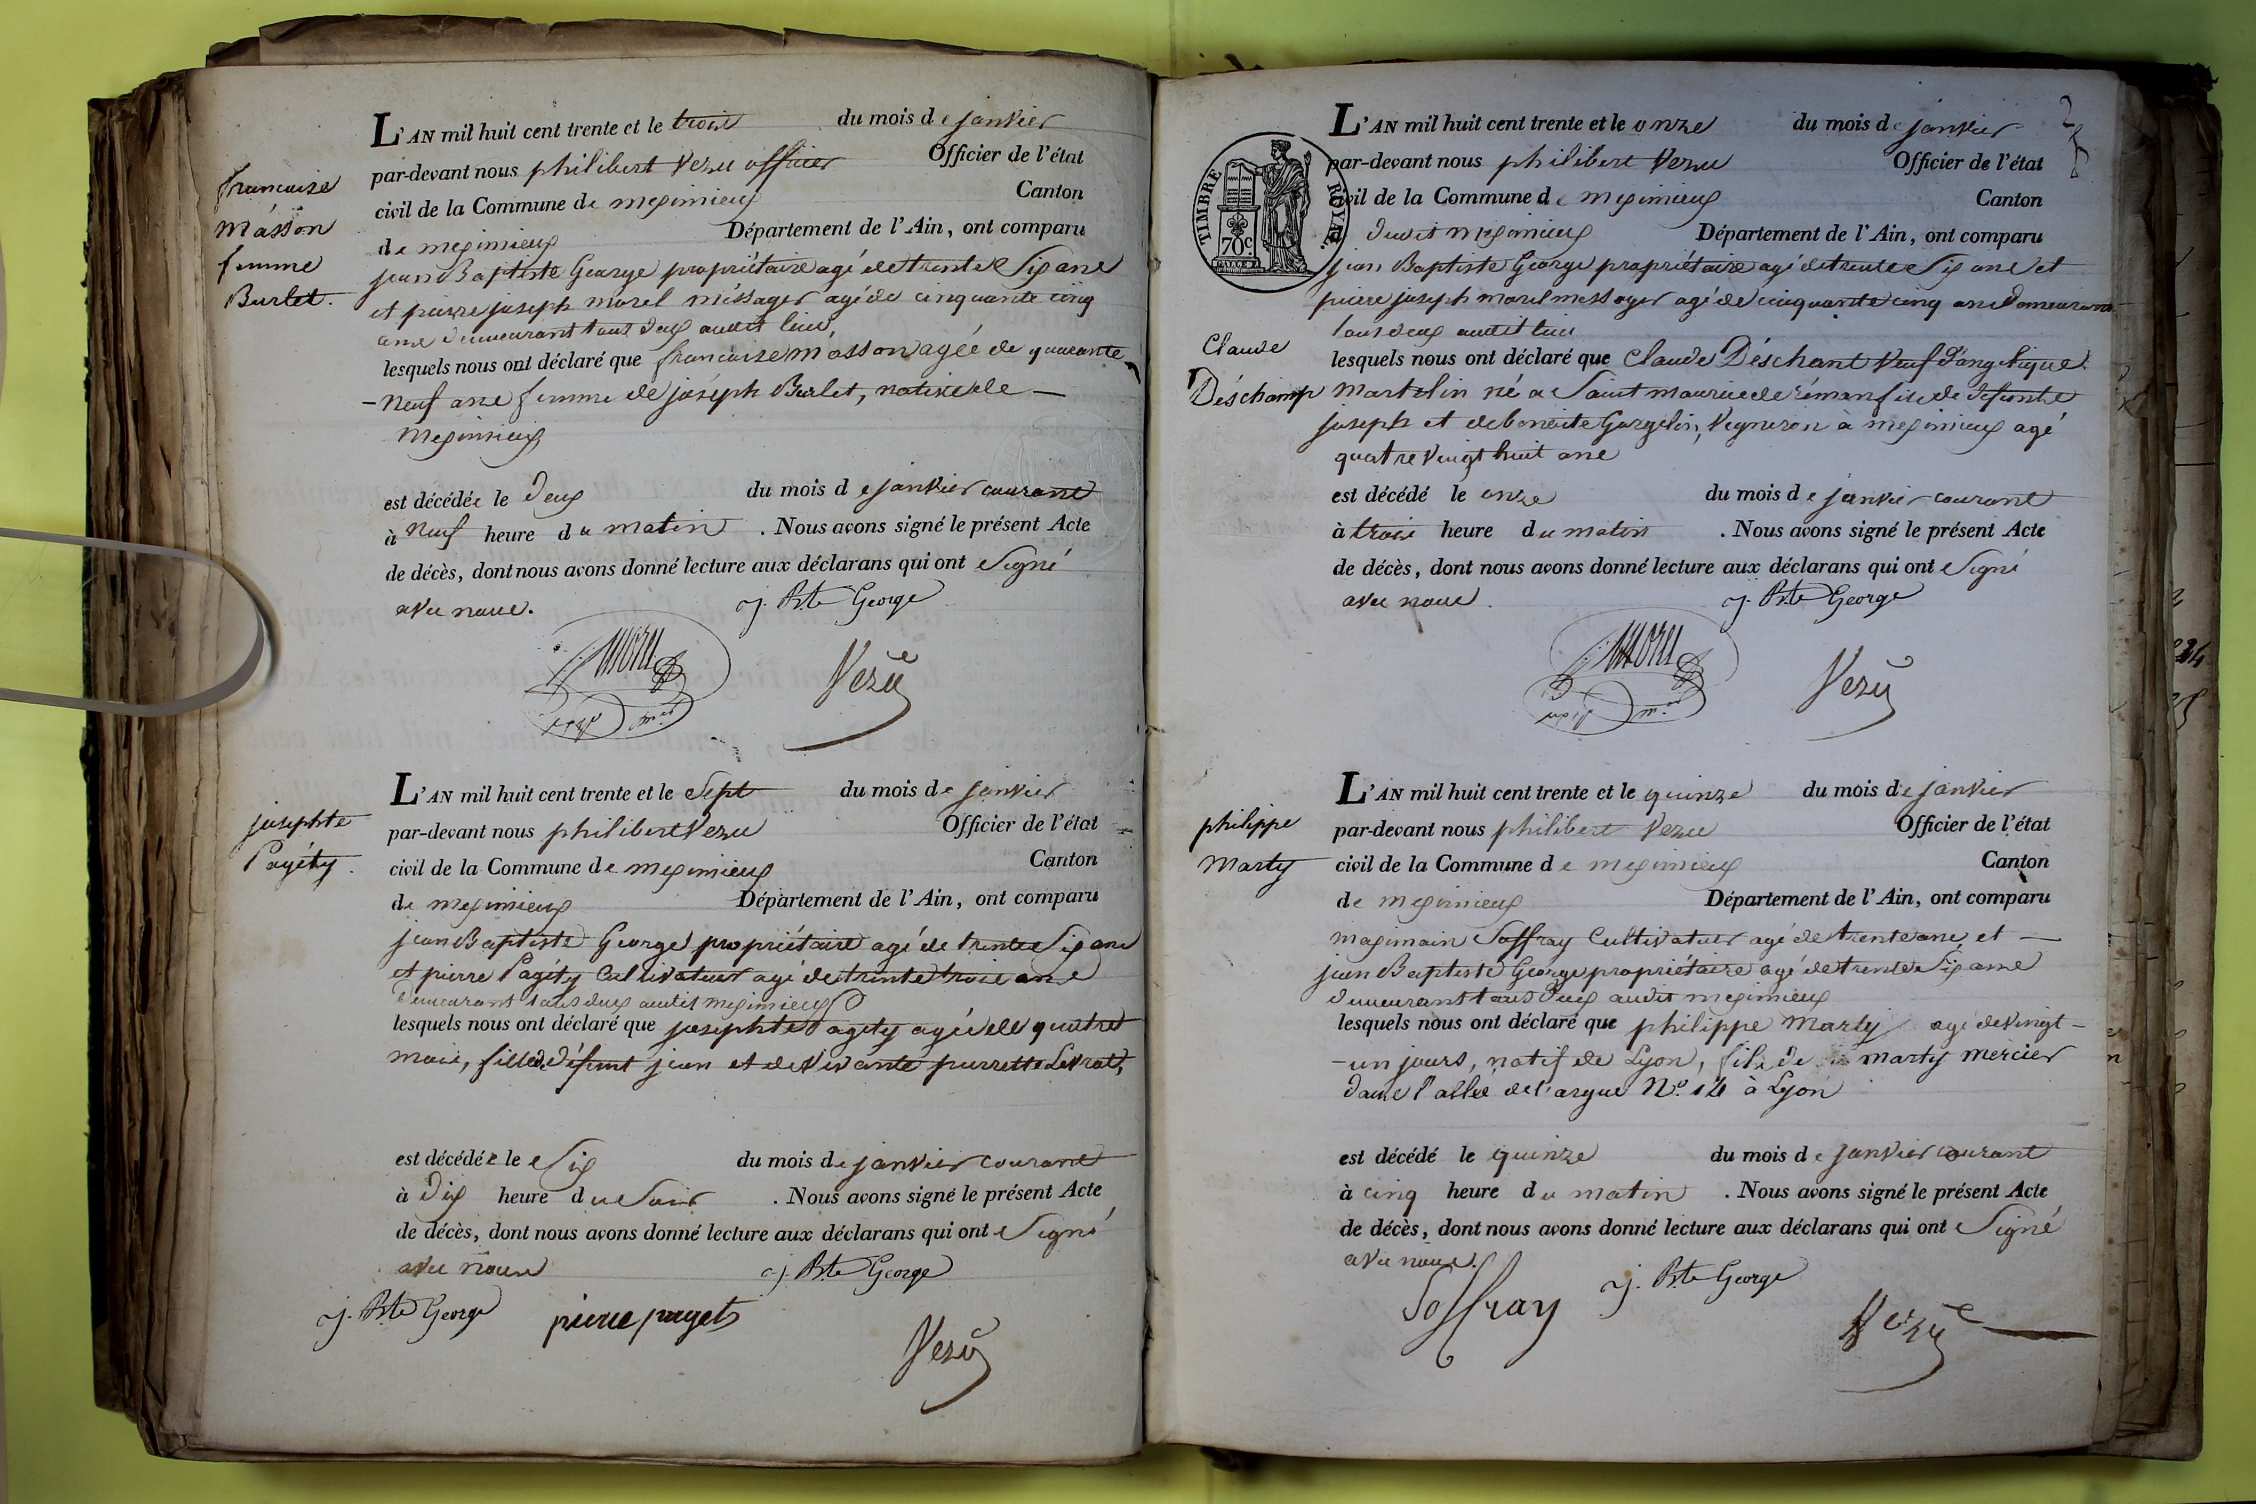 françoise
Masson
femme
Burlet.
L'AN mil huit cent trente et le trois du mois de janvier
par-devant nous philibert Vezu officier Officier de l'état
civil de la Commune de meximieux Canton
de meximieux Département de l'Ain, ont comparu
jean Baptiste George propriétaire agé de trente Six ans
et pierre joseph morel méssager agé de cinquante cinq
ans demeurant tous deux audit lieu,
lesquels nous ont déclaré que francoise masson agée de quarante
- Neuf ans femme de joséph Burlet, native de -
Meximieux
est décédée le Deux du mois de janvier courant
à Neuf heure du matin . Nous avons signé le présent Acte
de décès, dont nous avons donné lecture aux déclarans qui ont Signé
avec nous. j. Bte George
morel
Vezu
josephte
Pagéty.
L'AN mil huit cent trente et le Sept du mois de janvier
par-devant nous philibert Vezu Officier de l'état
civil de la Commune de meximieux Canton
de meximieux Département de l'Ain, ont comparu
jean Baptiste George propriétaire agé de trente Six ans
et pierre Pagéty Cultivateur agé de trente trois ans
demeurant tous deux audit meximieux
lesquels nous ont déclaré que josephte Pagety agée de quatre
mois, fille de défunt jean et de vivante pierrette Levrat,
est décédée le Six du mois de janvier courant
à Dix heure du Soir . Nous avons signé le présent Acte
de décès, dont nous avons donné lecture aux déclarans qui ont Signé
avec nous j. Bte George
j. Bte George pierre paget
Vezu
TIMBRE ROYAL
70c
L'AN mil huit cent trente et le onze du mois de janvier
par-devant nous philibert Vezu Officier de l'état
civil de la Commune de meximieux Canton
dudit meximieux Département de l'Ain, ont comparu
jean Baptiste George propriétaire agé de trente Six ans et
pierre joseph morel messager agé de cinquante cinq ans demeurant
tous deux audit lieu
Claude
Déschamp
lesquels nous ont déclaré que Claude Déschant Veuf d'angelique
Martelin né a Saint maurice de rémans fils de défunt
joseph et de benoite Gorgelin, Vigneron à meximieux agé
quatre vingt huit ans
est décédé le onze du mois de janvier courant
à trois heure du matin . Nous avons signé le présent Acte
de décès, dont nous avons donné lecture aux déclarans qui ont Signé
avec nous. j. Bte George
morel
Vezu
philippe
Marty
L'AN mil huit cent trente et le quinze du mois de janvier
par-devant nous philibert Vezu Officier de l'état
civil de la Commune de meximieux Canton
de meximieux Département de l'Ain, ont comparu
maximain Soffray Cultivateur agé de trente ans, et -
jean Baptiste George propriétaire agé de trente Six ans
demeurant tous Deux audit meximieux
lesquels nous ont déclaré que philippe Marty agé de vingt -
- un jours, natif de Lyon, fils de marty mercier
dans l'allée de l'argue N.o 14 à Lyon
est décédé le quinze du mois de janvier courant
à cinq heure du matin . Nous avons signé le présent Acte
de décès, dont nous avons donné lecture aux déclarans qui ont Signé
avec nous.
Soffray j. Bte George
Vezu